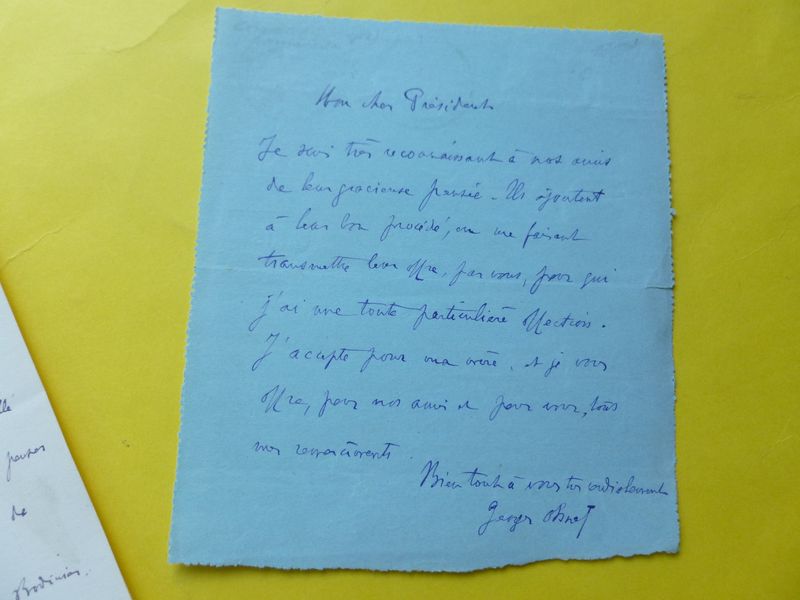 Mon cher Président
Je suis très reconnaissant à nos amis
de leur gracieuse pensée. Ils ajoutent
à leur bon procédé, en me faisant
transmettre leur offre, par vous, pour qui
j'ai une toute particulière affection.
J'accepte pour ma et je vous
offre, pour nos amis et pour vous, tous
mes remerciements.
Bien tout à vous très cordialement
Georges Ohnet
de
Bodinier.